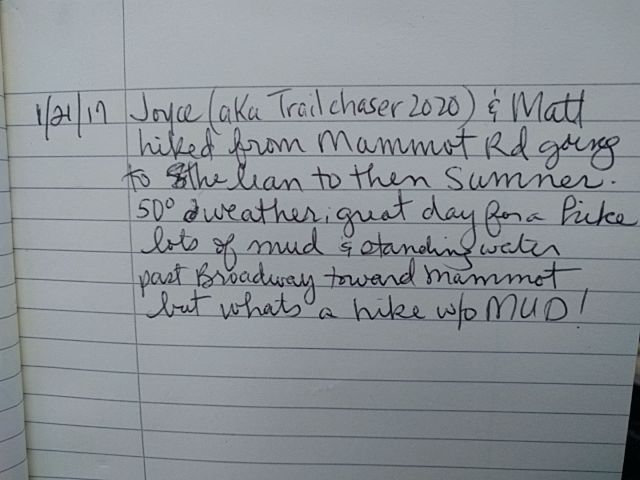 1/21/17 Joyce (aka Trailchaser 2020) & Matt
hiked from Mammot Rd going
to the lean to then Sumner.
50° weather, great day for a
lots of mud & standing water
past Broadway toward Mammot
but whats a hike w/o MUD!